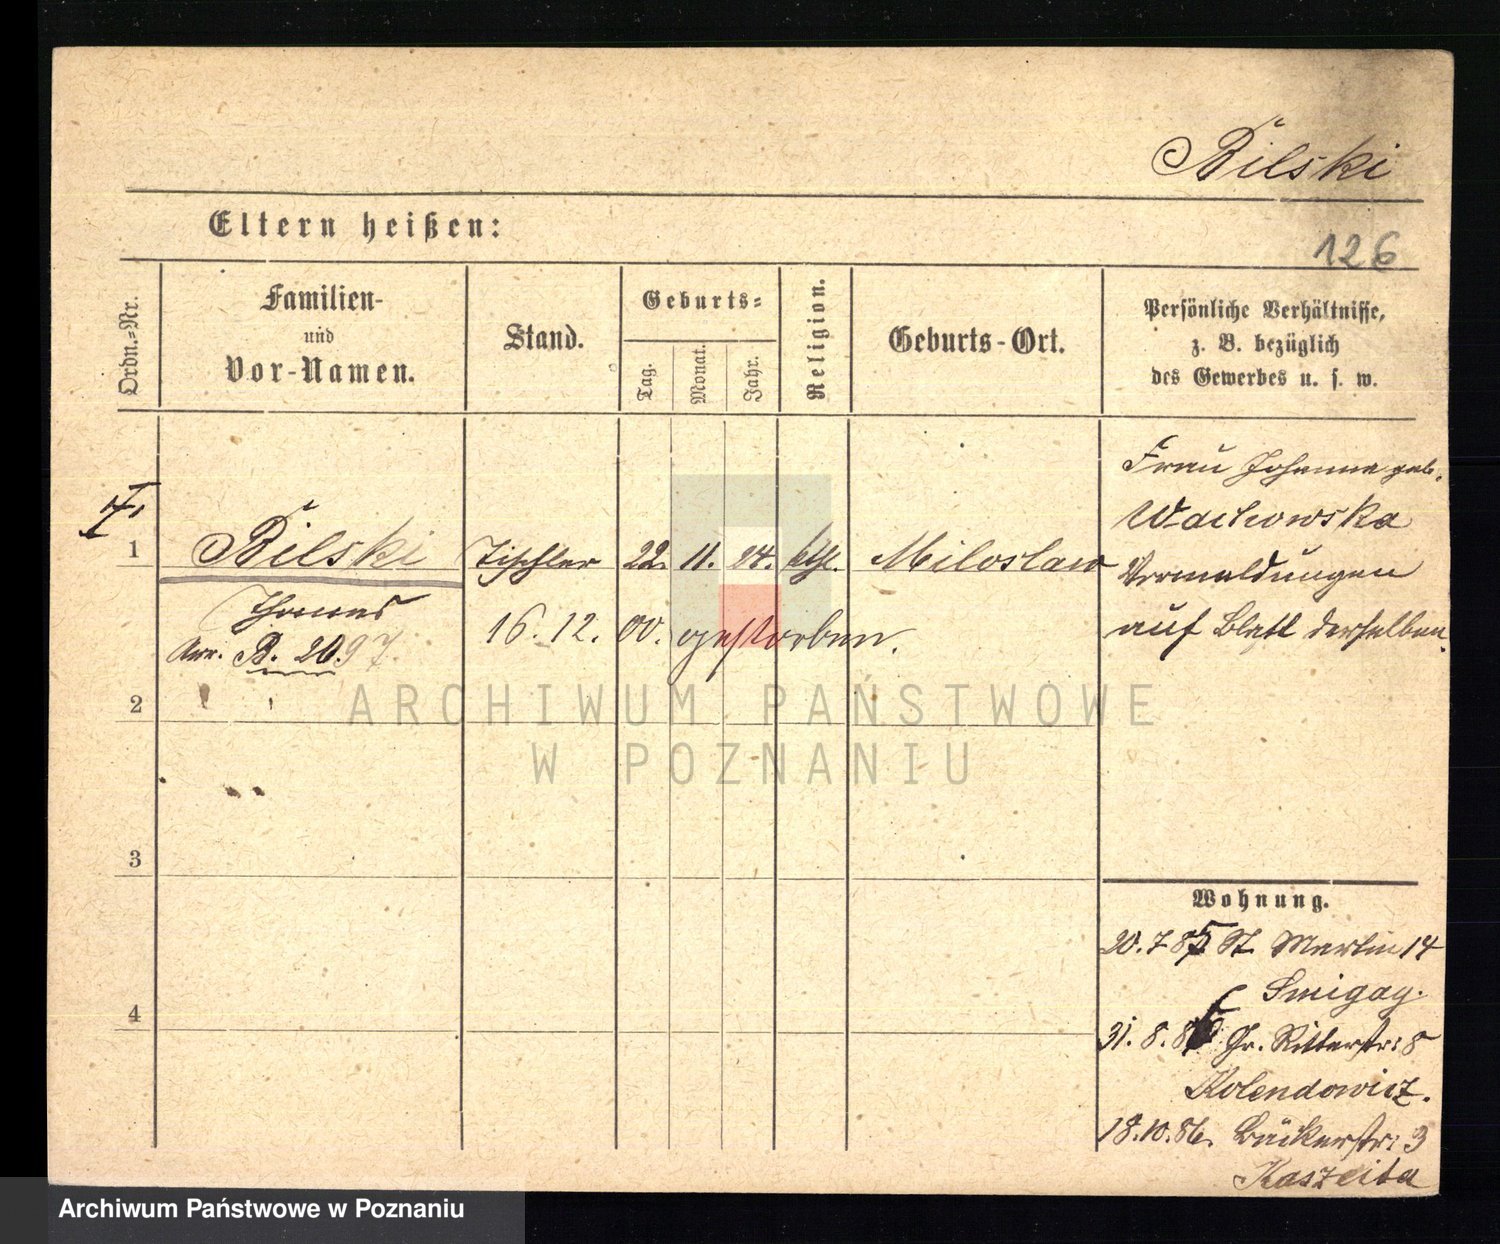 Bilski
Eltern heißen:
126
Ordn.-Nr.
Familien-
und
Vor-Namen.
Stand.
Geburts-
Tag.
Monat.
Jahr.
Religion.
Geburts-Ort.
Persönliche Verhältnisse,
z. B. bezüglich
des Gewerbes u. s. w.
I.
1
Bilski
Thomas
B. 2097
Tischler
22. 11. 24. kth.
Miloslaw
16. 12. 00. gestorben.
Frau Johanna geb.
Wachowska
Vermeldungen
auf Blatt derselben.
2
3
4
Wohnung.
20. 7 85 St. Martin 14
Smigay.
31. 8. 85 Gr. Ritterstr: 8
Kolendowicz.
18. 10. 86. Bäckerstr: 3
Kaszeita
ARCHIWUM PAŃSTWOWE
W POZNANIU
Archiwum Państwowe w Poznaniu